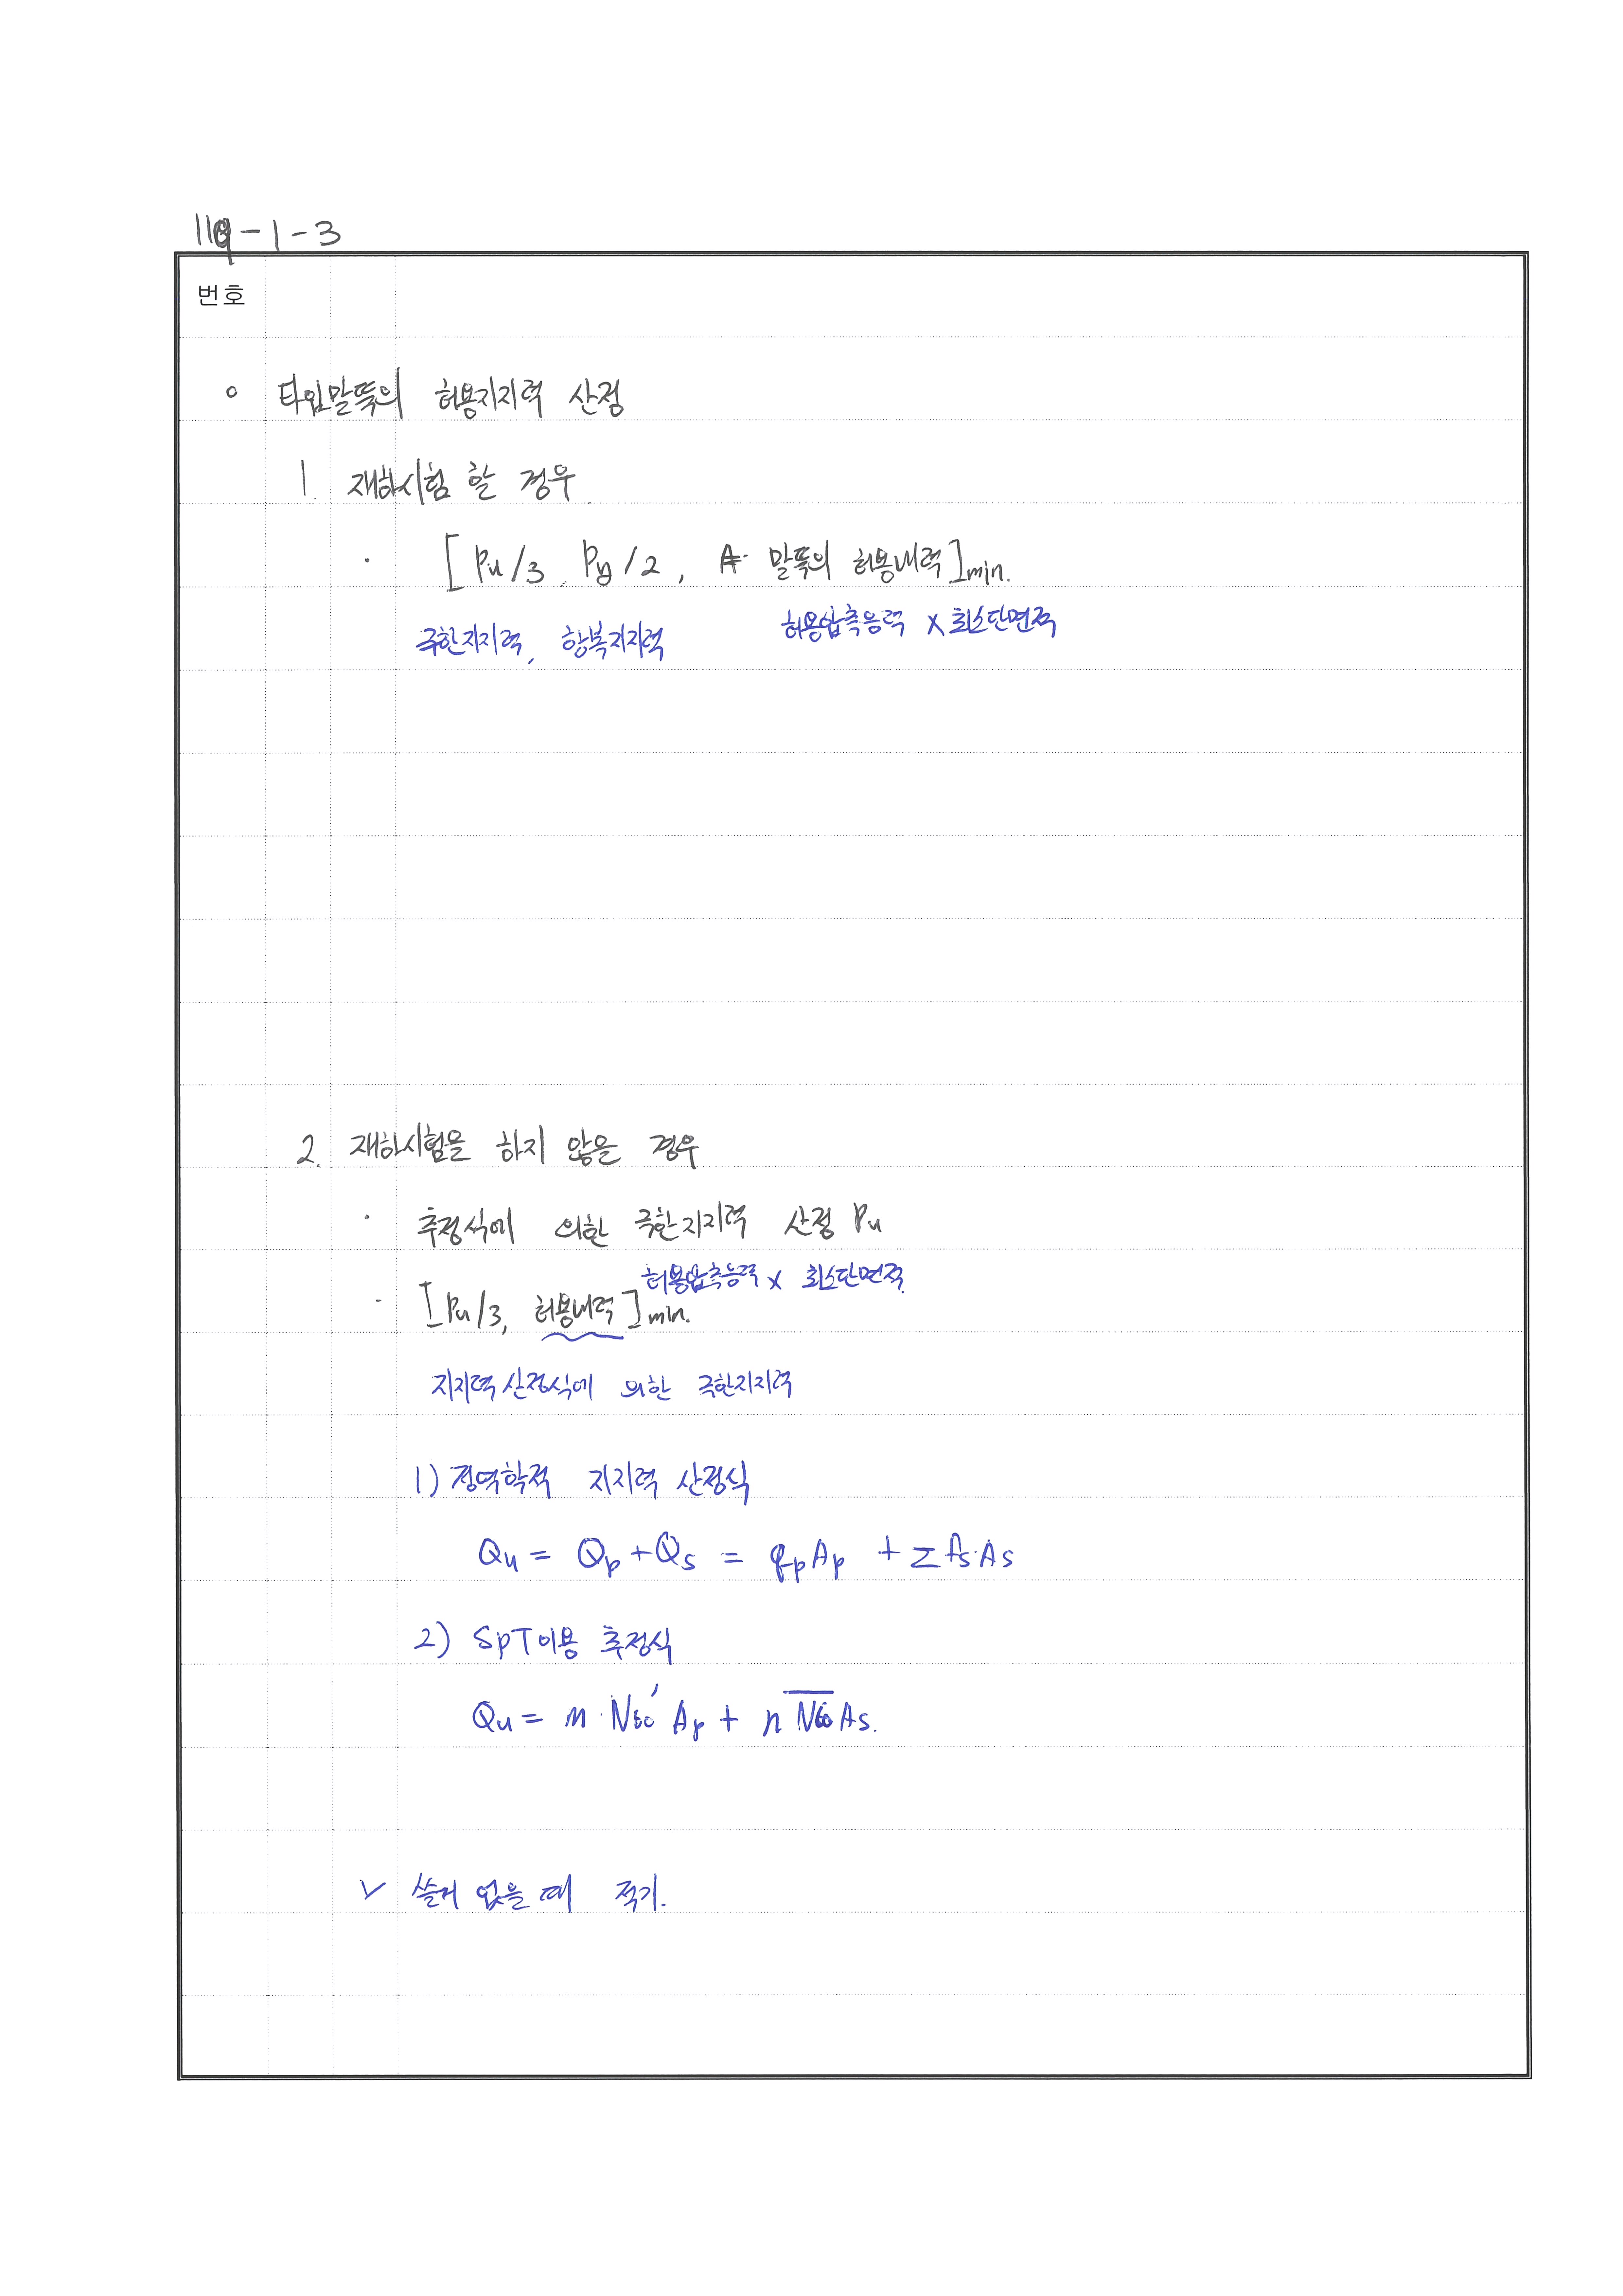 119-1-3
번호
○ 타입말뚝의 허용지지력 산정
1. 재하시험 할 경우
· [Pu/3, Py/2, 말뚝의 허용내력]min.
극한지지력, 항복지지력 허용압축응력 × 최소단면적
2. 재하시험을 하지 않을 경우
· 추정식에 의한 극한지지력 산정 Pu
허용압축응력 × 최소단면적
· [Pu/3, 허용내력]min.
지지력 산정식에 의한 극한지지력
1) 정역학적 지지력 산정식
Qu = Qp + Qs = qpAp + Σfs·As
2) SPT이용 추정식
Qu = m·N60' Ap + n N̅6̅0̅ As.
✓ 쓸거 없을 때 적기.